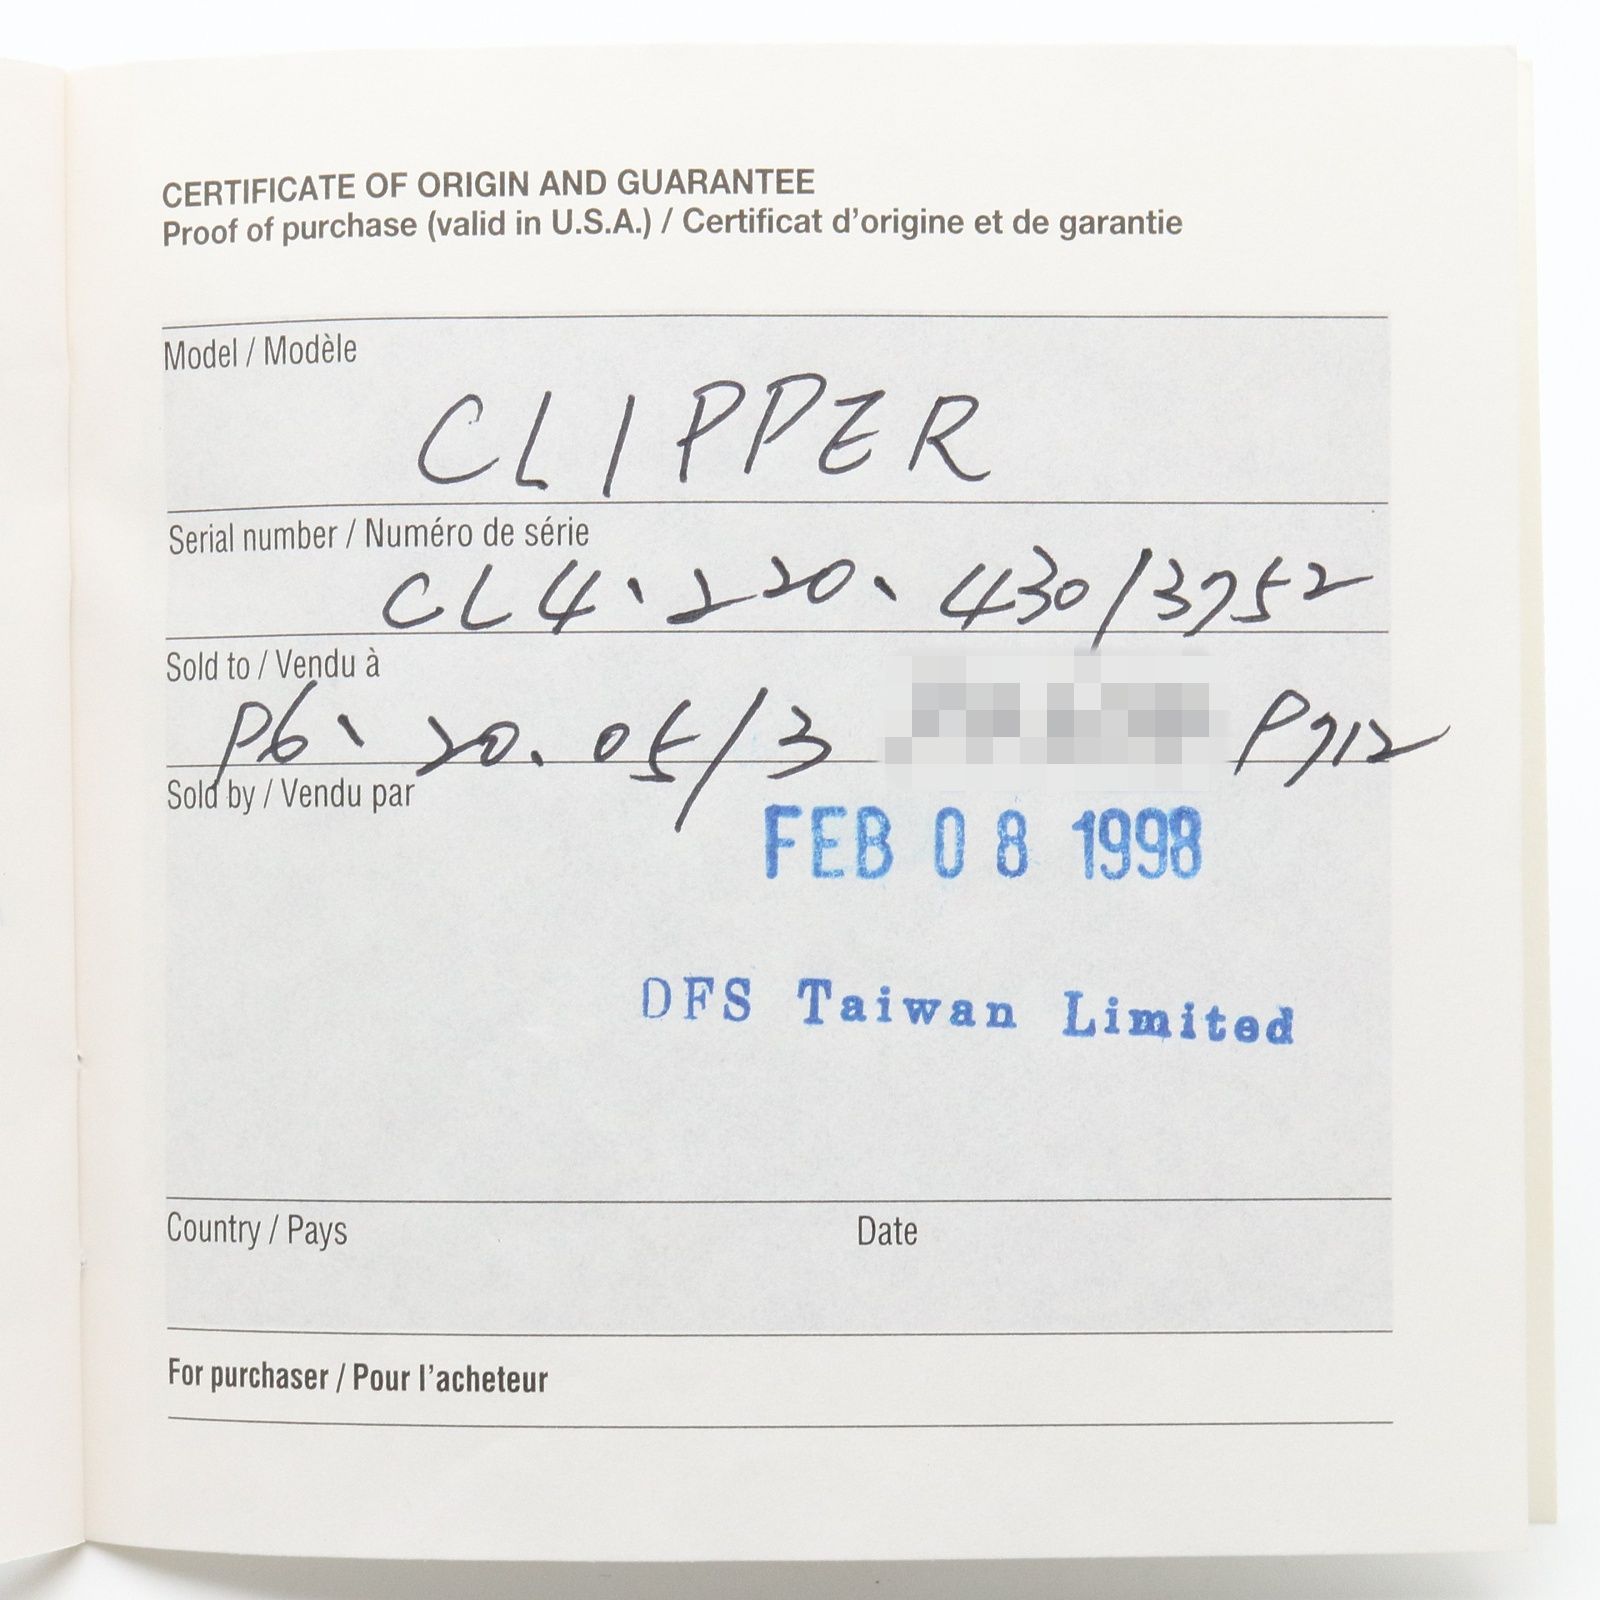 CERTIFICATE OF ORIGIN AND GUARANTEE
Proof of purchase (valid in U.S.A.) / Certificat d'origine et de garantie
Model / Modèle
CLIPPER
Serial number / Numéro de série
CL4、220、430/3752
Sold to / Vendu à
P6、20.05/3 P712
Sold by / Vendu par
FEB 08 1998
DFS Taiwan Limited
Country / Pays Date
For purchaser / Pour l'acheteur